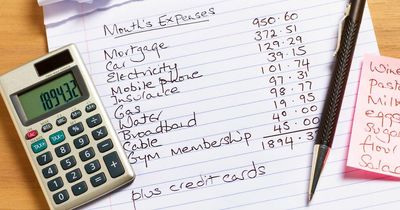 Month's Expenses
Mortgage 950.60
Car 372.51
Electricity 129.29
Mobile phone 39.15
Insurance 101.74
Gas 97.31
Water 98.77
Broadband 19.95
Cable 40.00
Gym Membership 45.00
1894.3
plus credit cards
1894.32
Wine
Pasta
Milk
eggs
Sugar
flour
Salad